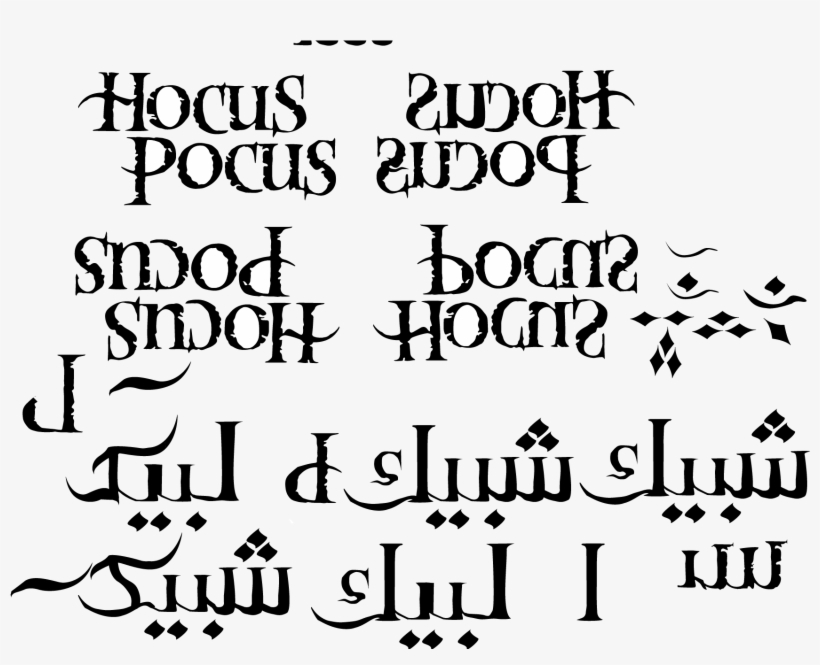 Hocus Hocus
Pocus Pocus
Pocus Pocus
Hocus Hocus
شبيك شبيك لبيك
شبيك لبيك ا